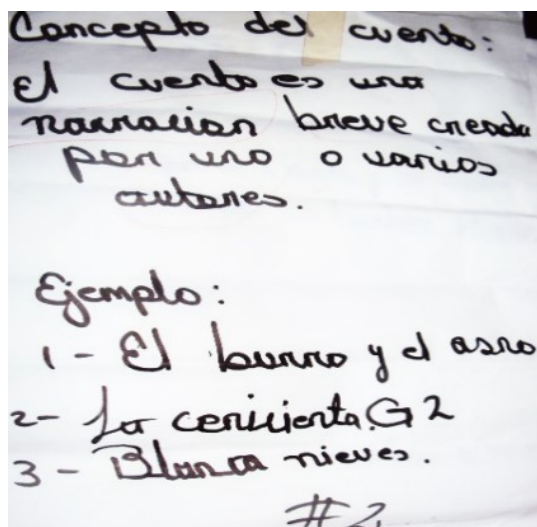 Concepto del cuento:
El cuento es una
narracion breve creada
por uno o varios
autores.
Ejemplo:
1 - El burro y el asno
2- La cenicienta. G2
3 - Blanca nieves.
#2